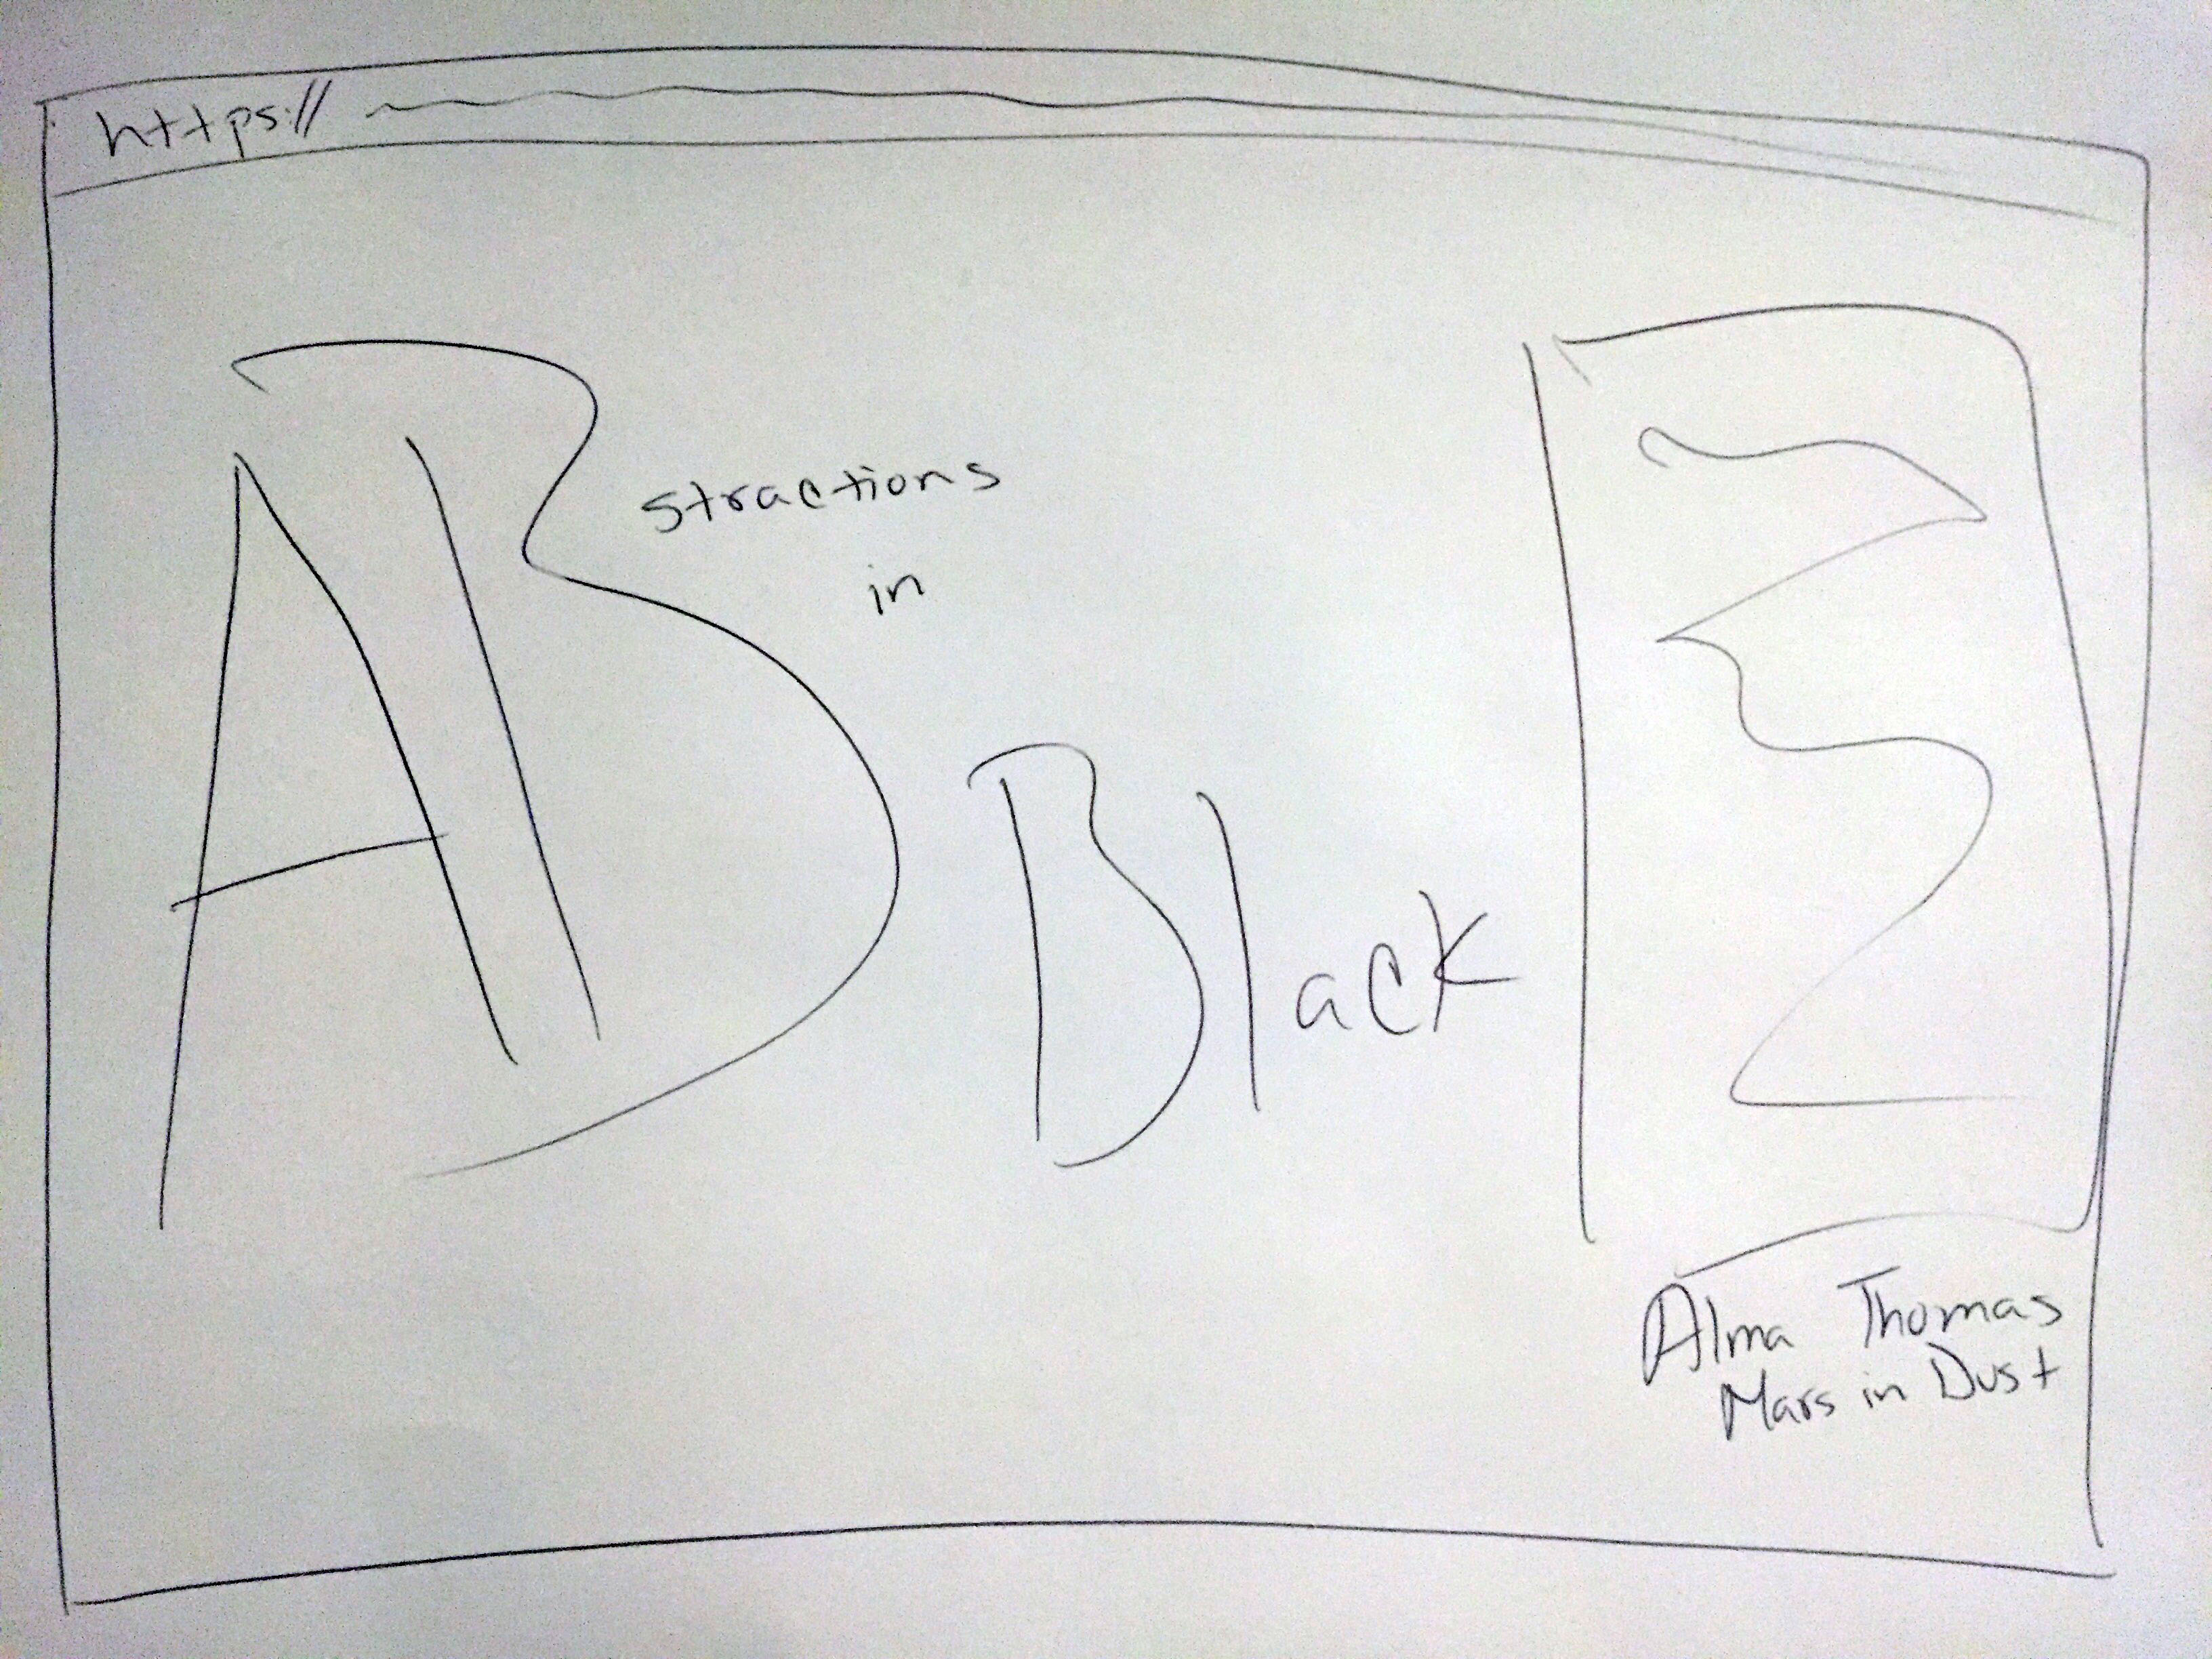 https://
ABstractions
in
Black
Alma Thomas
Mars in Dust